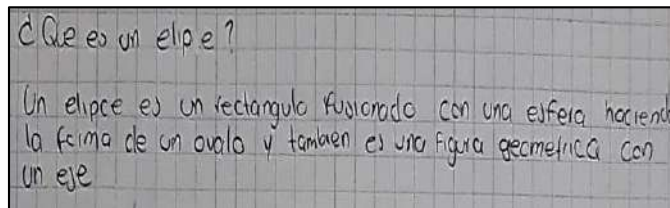 ¿Que es un elipe?
Un elipce es un rectangulo fusionado con una esfera haciend
la forma de un ovalo y tambien es una figura geometrica con
un eje